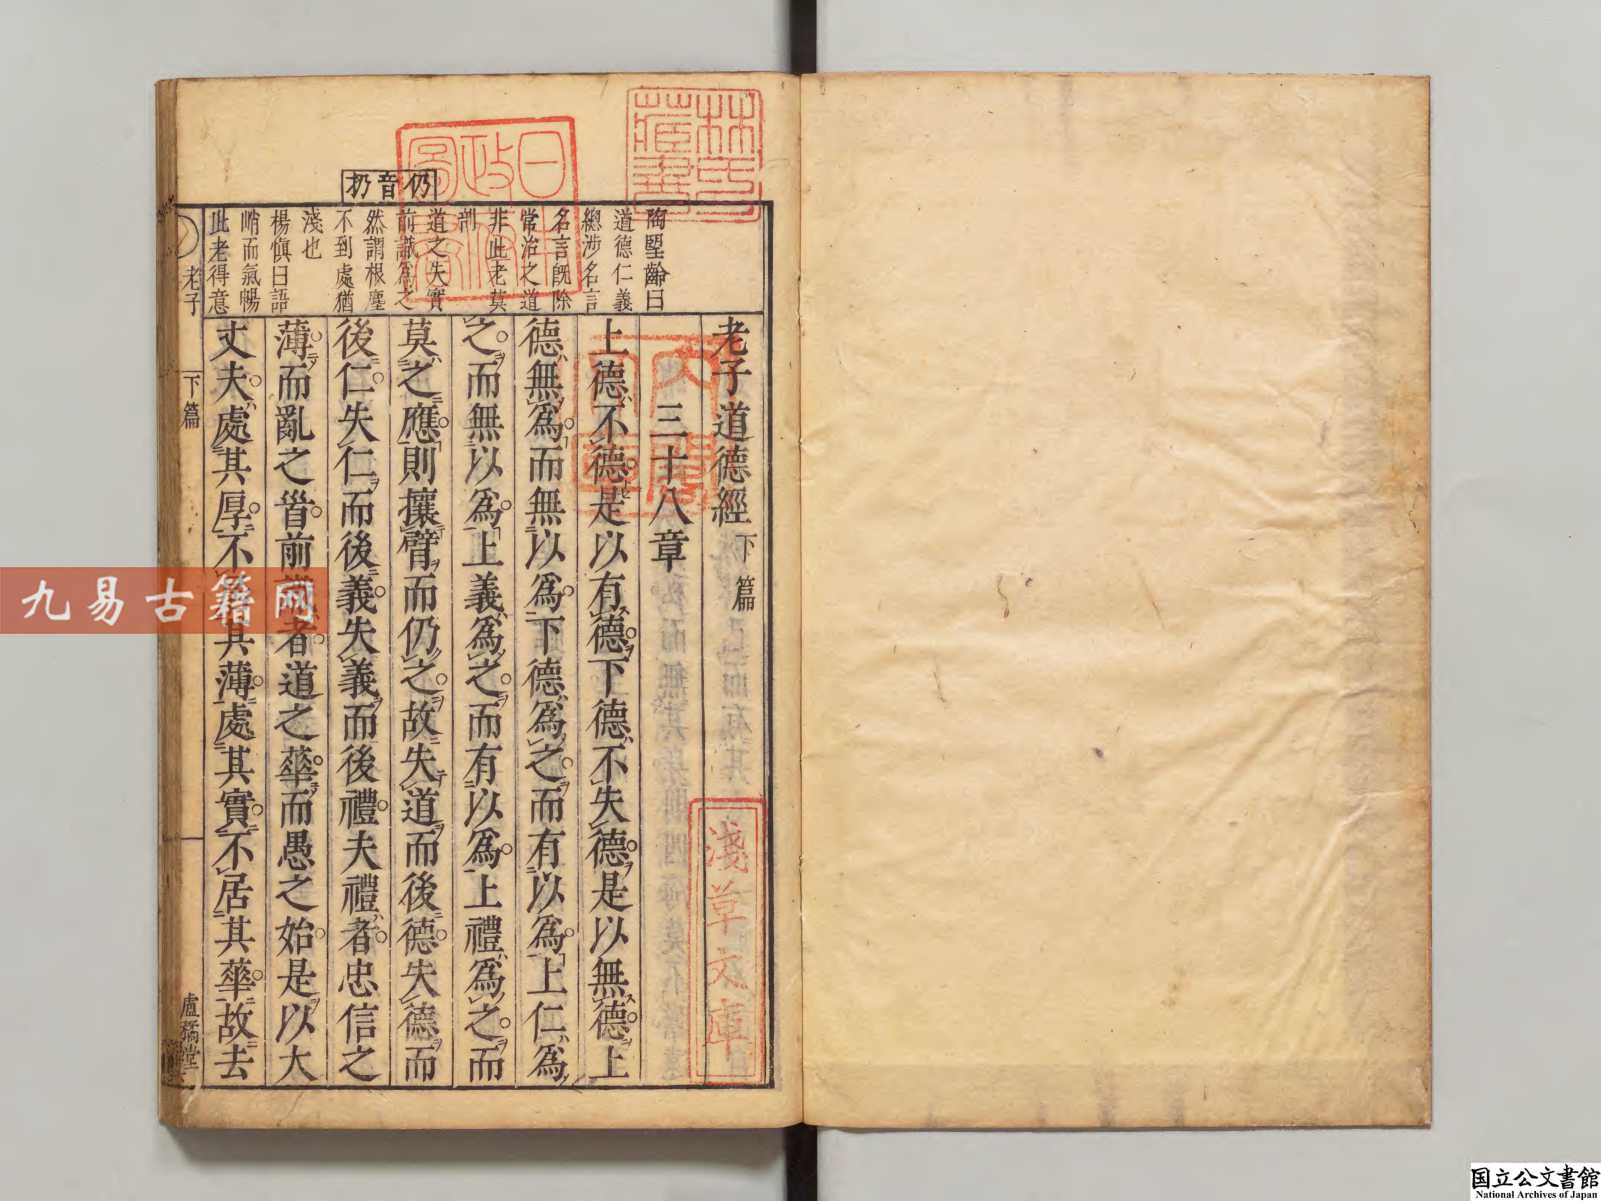 老子道德經 下篇
三十八章
上德不德是以有德下德不失德是以無德上
德無爲而無以爲下德爲之而有以爲上仁爲
之而無以爲上義爲之而有以爲上禮爲之而
莫之應則攘臂而仍之故失道而後德失德而
後仁失仁而後義失義而後禮夫禮者忠信之
薄而亂之首前識者道之華而愚之始是以大
丈夫處其厚不處其薄處其實不居其華故去
陶望齡曰
道德仁義
總涉名言
名言既除
常治之道
非此老莫
剖
道之失實
前識爲之
然謂根塵
不到處猶
淺也
楊愼曰語
峭而氣暢
此老得意
仍音扔
老子 下篇 盧橘堂
林氏藏書
日本政府圖書
淺草文庫
九易古籍网
国立公文書館
National Archives of Japan